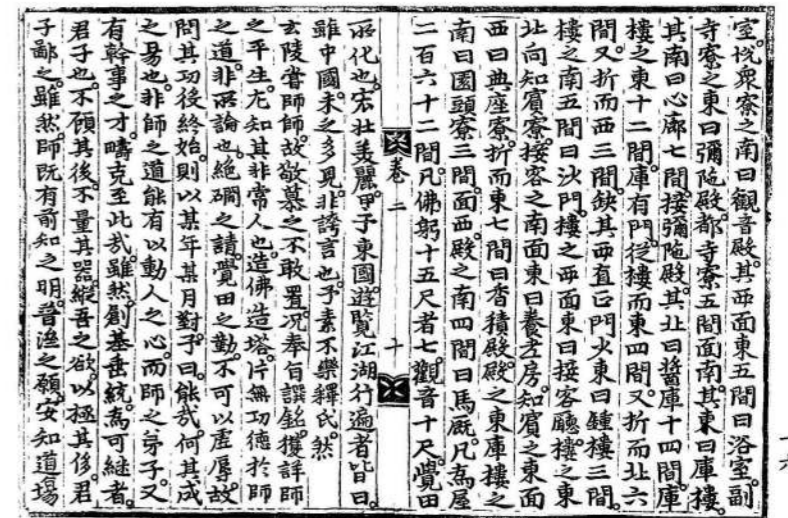 室。悅衆寮之南曰觀音殿。其西面東五間曰浴室。副
寺寮之東曰彌陁殿。都寺寮五間面南。其東曰庫樓。
其南曰心廊七間。接彌陁殿。其北曰醬庫十四間。庫
樓之東十二間。庫有門。從樓而東四間。又折而北六
間。又折而西三間。缺其西直正門少東曰鍾樓三間。
樓之南五間曰沙門樓之西面東曰接客廳。樓之東
北向知賓寮。接客之南面東曰養老房。知賓之東面
西曰典座寮。折而東七間曰香積殿。殿之東庫樓之
南曰園頭寮三間。面西殿之南四間曰馬廐。凡爲屋
二百六十二間。凡佛躬十五尺者七。觀音十尺。覺田
卷二
十
所化也。宏壯美麗。甲于東國。遊覽江湖行遍者皆曰。
雖中國未之多見。非誇言也。予素不樂釋氏。然
玄陵嘗師師。故敬慕之不敢置。况奉旨譔銘。獲詳師
之平生。尤知其非常人也。造佛造塔。片無功德於師
之道。非所論也。絶磵之請。覺田之勤。不可以虛辱。故
問其功後終始。則以某年某月對。予曰。能哉何其成
之易也。非師之道能有以動人之心。而師之弟子。又
有幹事之才。疇克至此哉。雖然。創基垂統。爲可継者。
君子也。不顧其後。不量其器。縱吾之欲。以極其侈。君
子鄙之。雖然師既有前知之明。普濟之願。安知道場